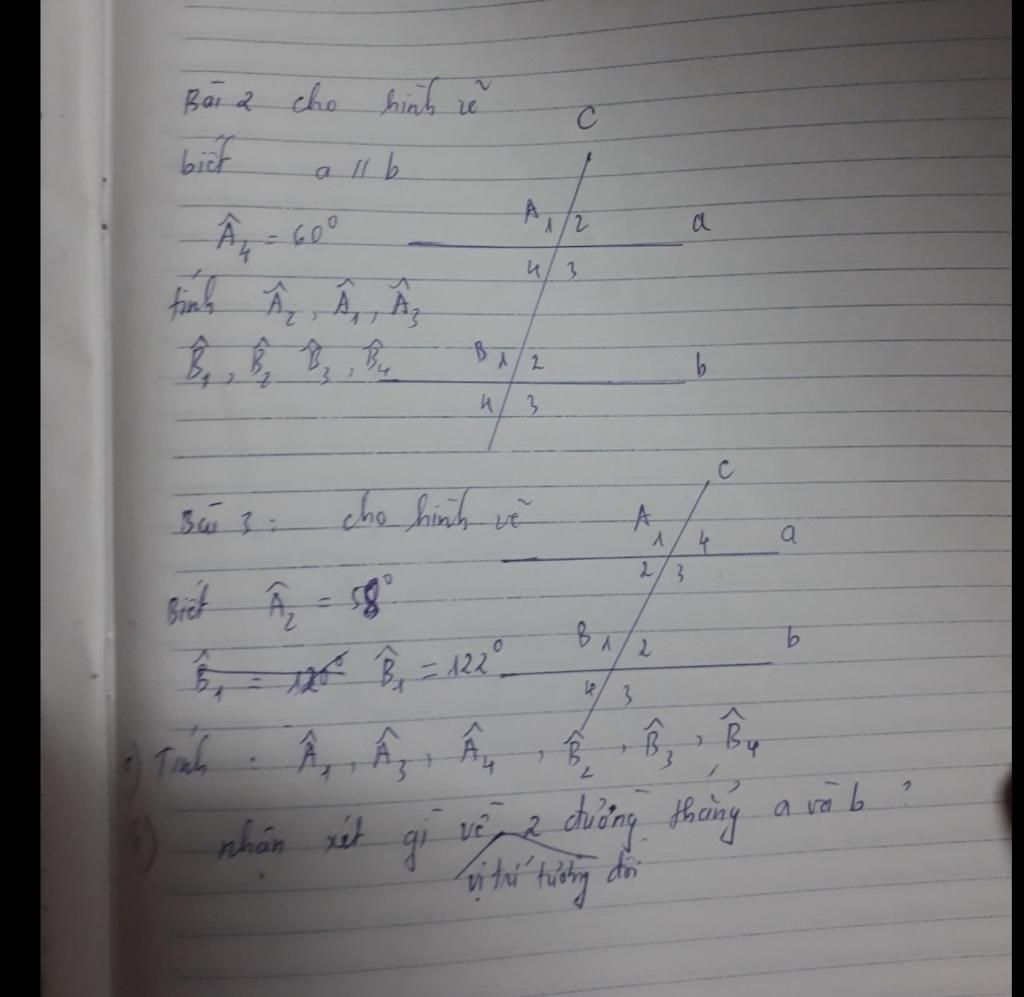 Bài 2 cho hình vẽ
biết a // b
Â₄ = 60°
tính Â₂, Â₁, Â₃
B̂₁, B̂₂ B̂₃, B̂₄
C
A 1 2 a
4 3
B 1 2 b
4 3
Bài 3: cho hình vẽ
Biết Â₂ = 58°
B̂₁ = 120° B̂₁ = 122°
C
A 1 4 a
2 3
B 1 2 b
4 3
a) Tính: Â₁, Â₃, Â₄, B̂₂, B̂₃, B̂₄
b) nhận xét gì về 2 đường thẳng a và b ?
vị trí tương đối